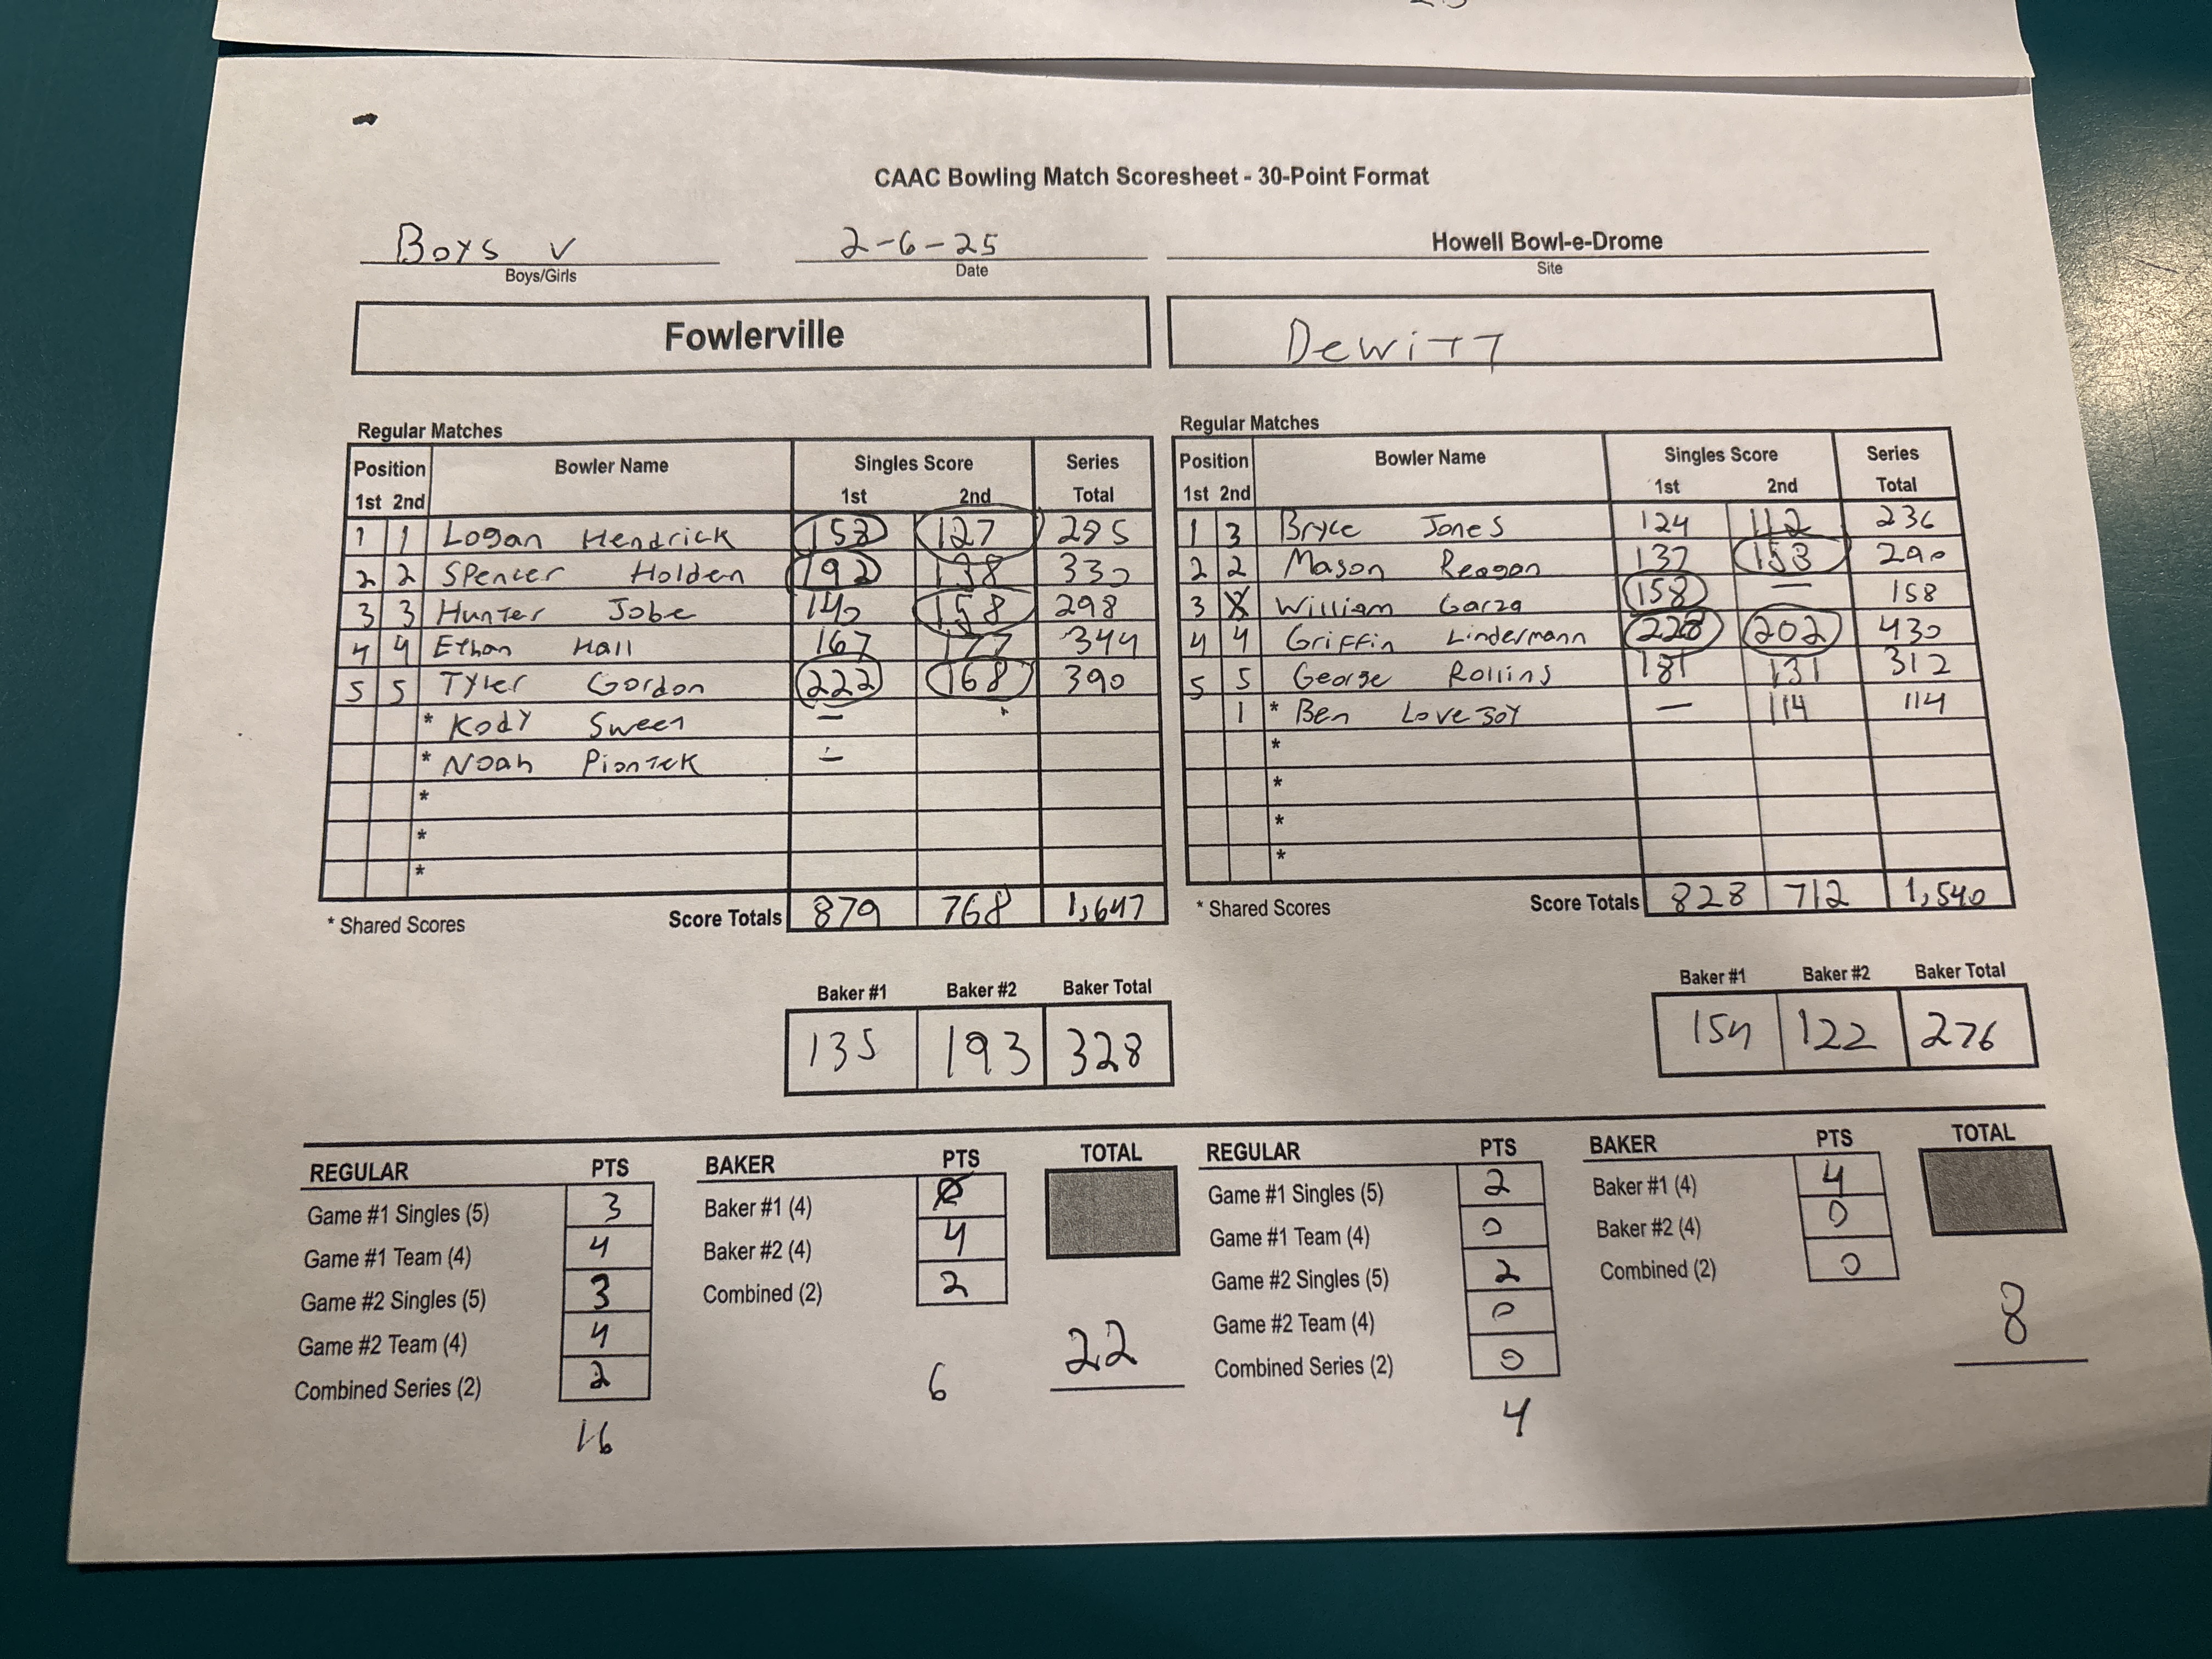 CAAC Bowling Match Scoresheet - 30-Point Format
Boys V 2-6-25 Howell Bowl-e-Drome
Boys/Girls Date Site
Fowlerville
DeWitt
Regular Matches
Position Bowler Name Singles Score Series
1st 2nd 1st 2nd Total
1 1 Logan Hendrick 158 127 285
2 2 Spencer Holden 192 138 330
3 3 Hunter Jobe 140 158 298
4 4 Ethan Hall 167 177 344
5 5 Tyler Gordon 222 168 390
* Kody Sween —
* Noah Piontek —
*
*
*
* Shared Scores Score Totals 879 768 1,647
Baker #1 Baker #2 Baker Total
135 193 328
Regular Matches
Position Bowler Name Singles Score Series
1st 2nd 1st 2nd Total
1 3 Bryce Jones 124 112 236
2 2 Mason Reagan 137 153 290
3 X William Garza 158 — 158
4 4 Griffin Lindermann 228 202 430
5 5 George Rollins 181 131 312
1 * Ben Lovejoy — 114 114
*
*
*
*
* Shared Scores Score Totals 828 712 1,540
Baker #1 Baker #2 Baker Total
154 122 276
REGULAR PTS BAKER PTS TOTAL
Game #1 Singles (5) 3 Baker #1 (4) 0
Game #1 Team (4) 4 Baker #2 (4) 4
Game #2 Singles (5) 3 Combined (2) 2
Game #2 Team (4) 4
Combined Series (2) 2
16 6 22
REGULAR PTS BAKER PTS TOTAL
Game #1 Singles (5) 2 Baker #1 (4) 4
Game #1 Team (4) 0 Baker #2 (4) 0
Game #2 Singles (5) 2 Combined (2) 0
Game #2 Team (4) 0
Combined Series (2) 0
4 8